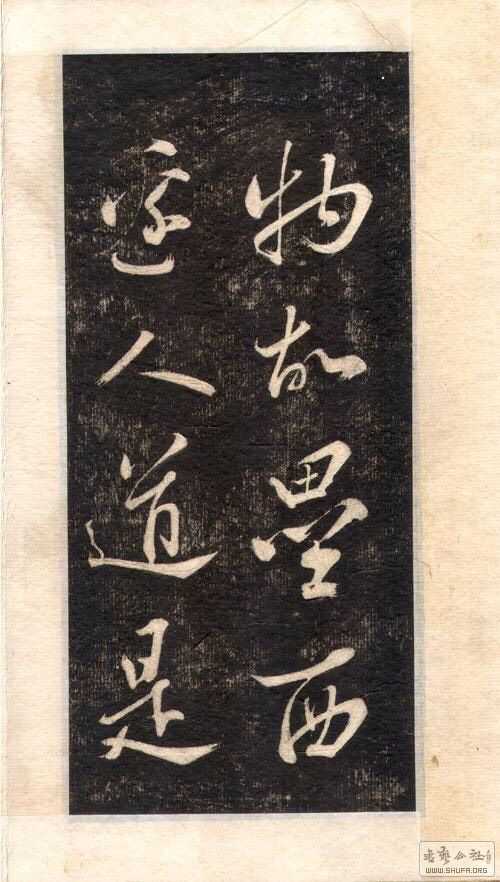 物故壘西
邊人道是
書藝公社
WWW.SHUFA.ORG